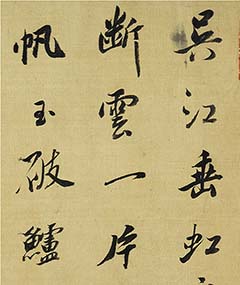 吳江垂虹
斷雲一片
帆玉破鱸